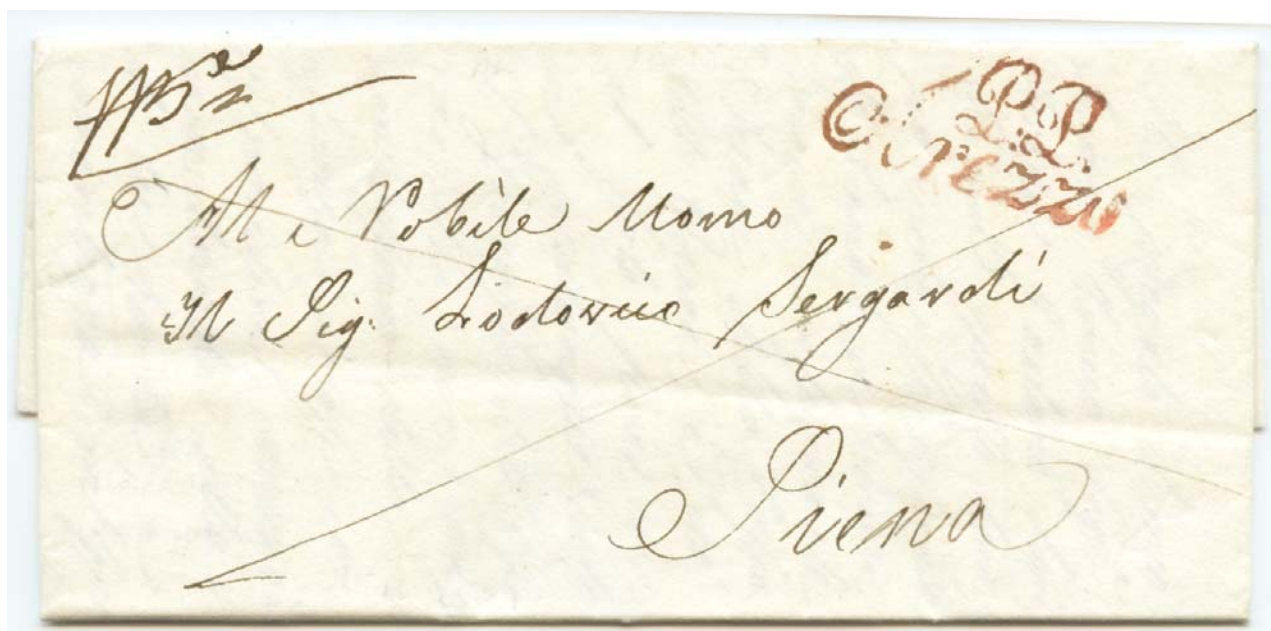 P.P.
Arezzo
Al Nobile Uomo
Il Sig: Lodovico Sergardi
Siena